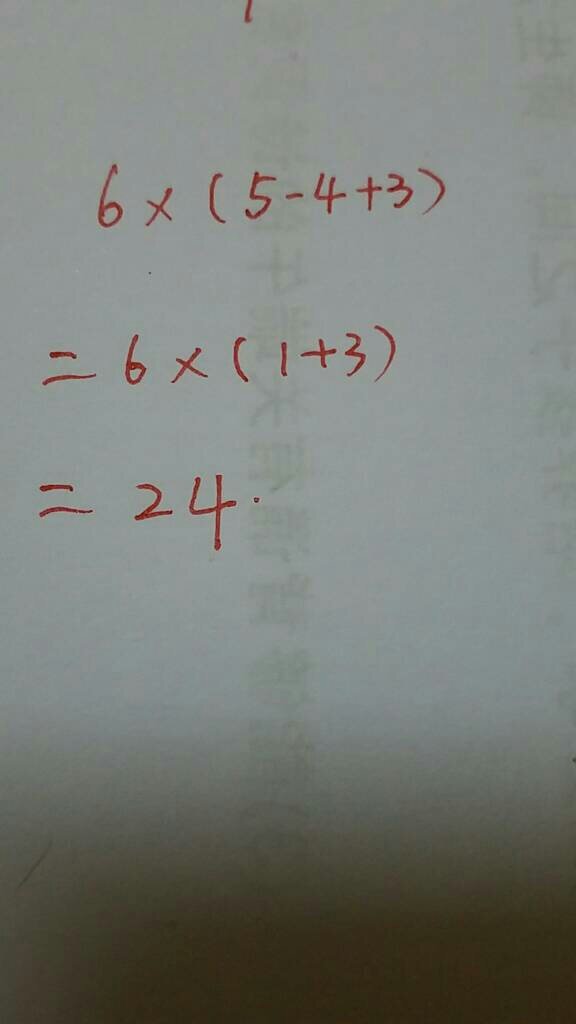 6×(5-4+3)
=6×(1+3)
=24.